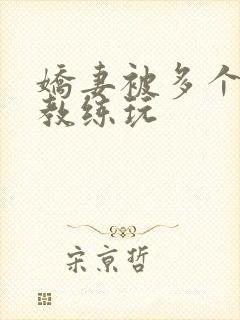 嬌妻被多个
教练玩
宋京哲